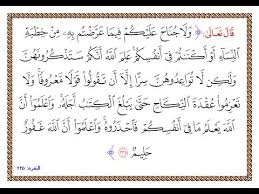 قَالَ تَعَالَى: ﴿ وَلَا جُنَاحَ عَلَيْكُمْ فِيمَا عَرَّضْتُم بِهِۦ مِنْ خِطْبَةِ
النِّسَآءِ أَوْ أَكْنَنتُمْ فِىٓ أَنفُسِكُمْ عَلِمَ اللَّهُ أَنَّكُمْ سَتَذْكُرُونَهُنَّ
وَلَٰكِن لَّا تُوَاعِدُوهُنَّ سِرًّا إِلَّآ أَن تَقُولُوا۟ قَوْلًا مَّعْرُوفًا وَلَا
تَعْزِمُوا۟ عُقْدَةَ النِّكَاحِ حَتَّىٰ يَبْلُغَ الْكِتَٰبُ أَجَلَهُۥ وَاعْلَمُوٓا۟ أَنَّ
اللَّهَ يَعْلَمُ مَا فِىٓ أَنفُسِكُمْ فَاحْذَرُوهُ وَاعْلَمُوٓا۟ أَنَّ اللَّهَ غَفُورٌ
حَلِيمٌ ﴿٢٣٥﴾ ﴾
البقرة: ٢٣٥